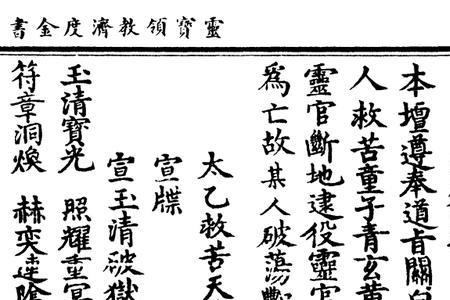 靈寶領教濟度金書
本壇遵奉道旨關
人救苦童子青玄黃
靈官斷地逮役靈官
為亡故某人破蕩
太乙救苦天
宣牒
宣玉清破獄
玉清寶光 照耀重冥
符章洞煥 赫奕